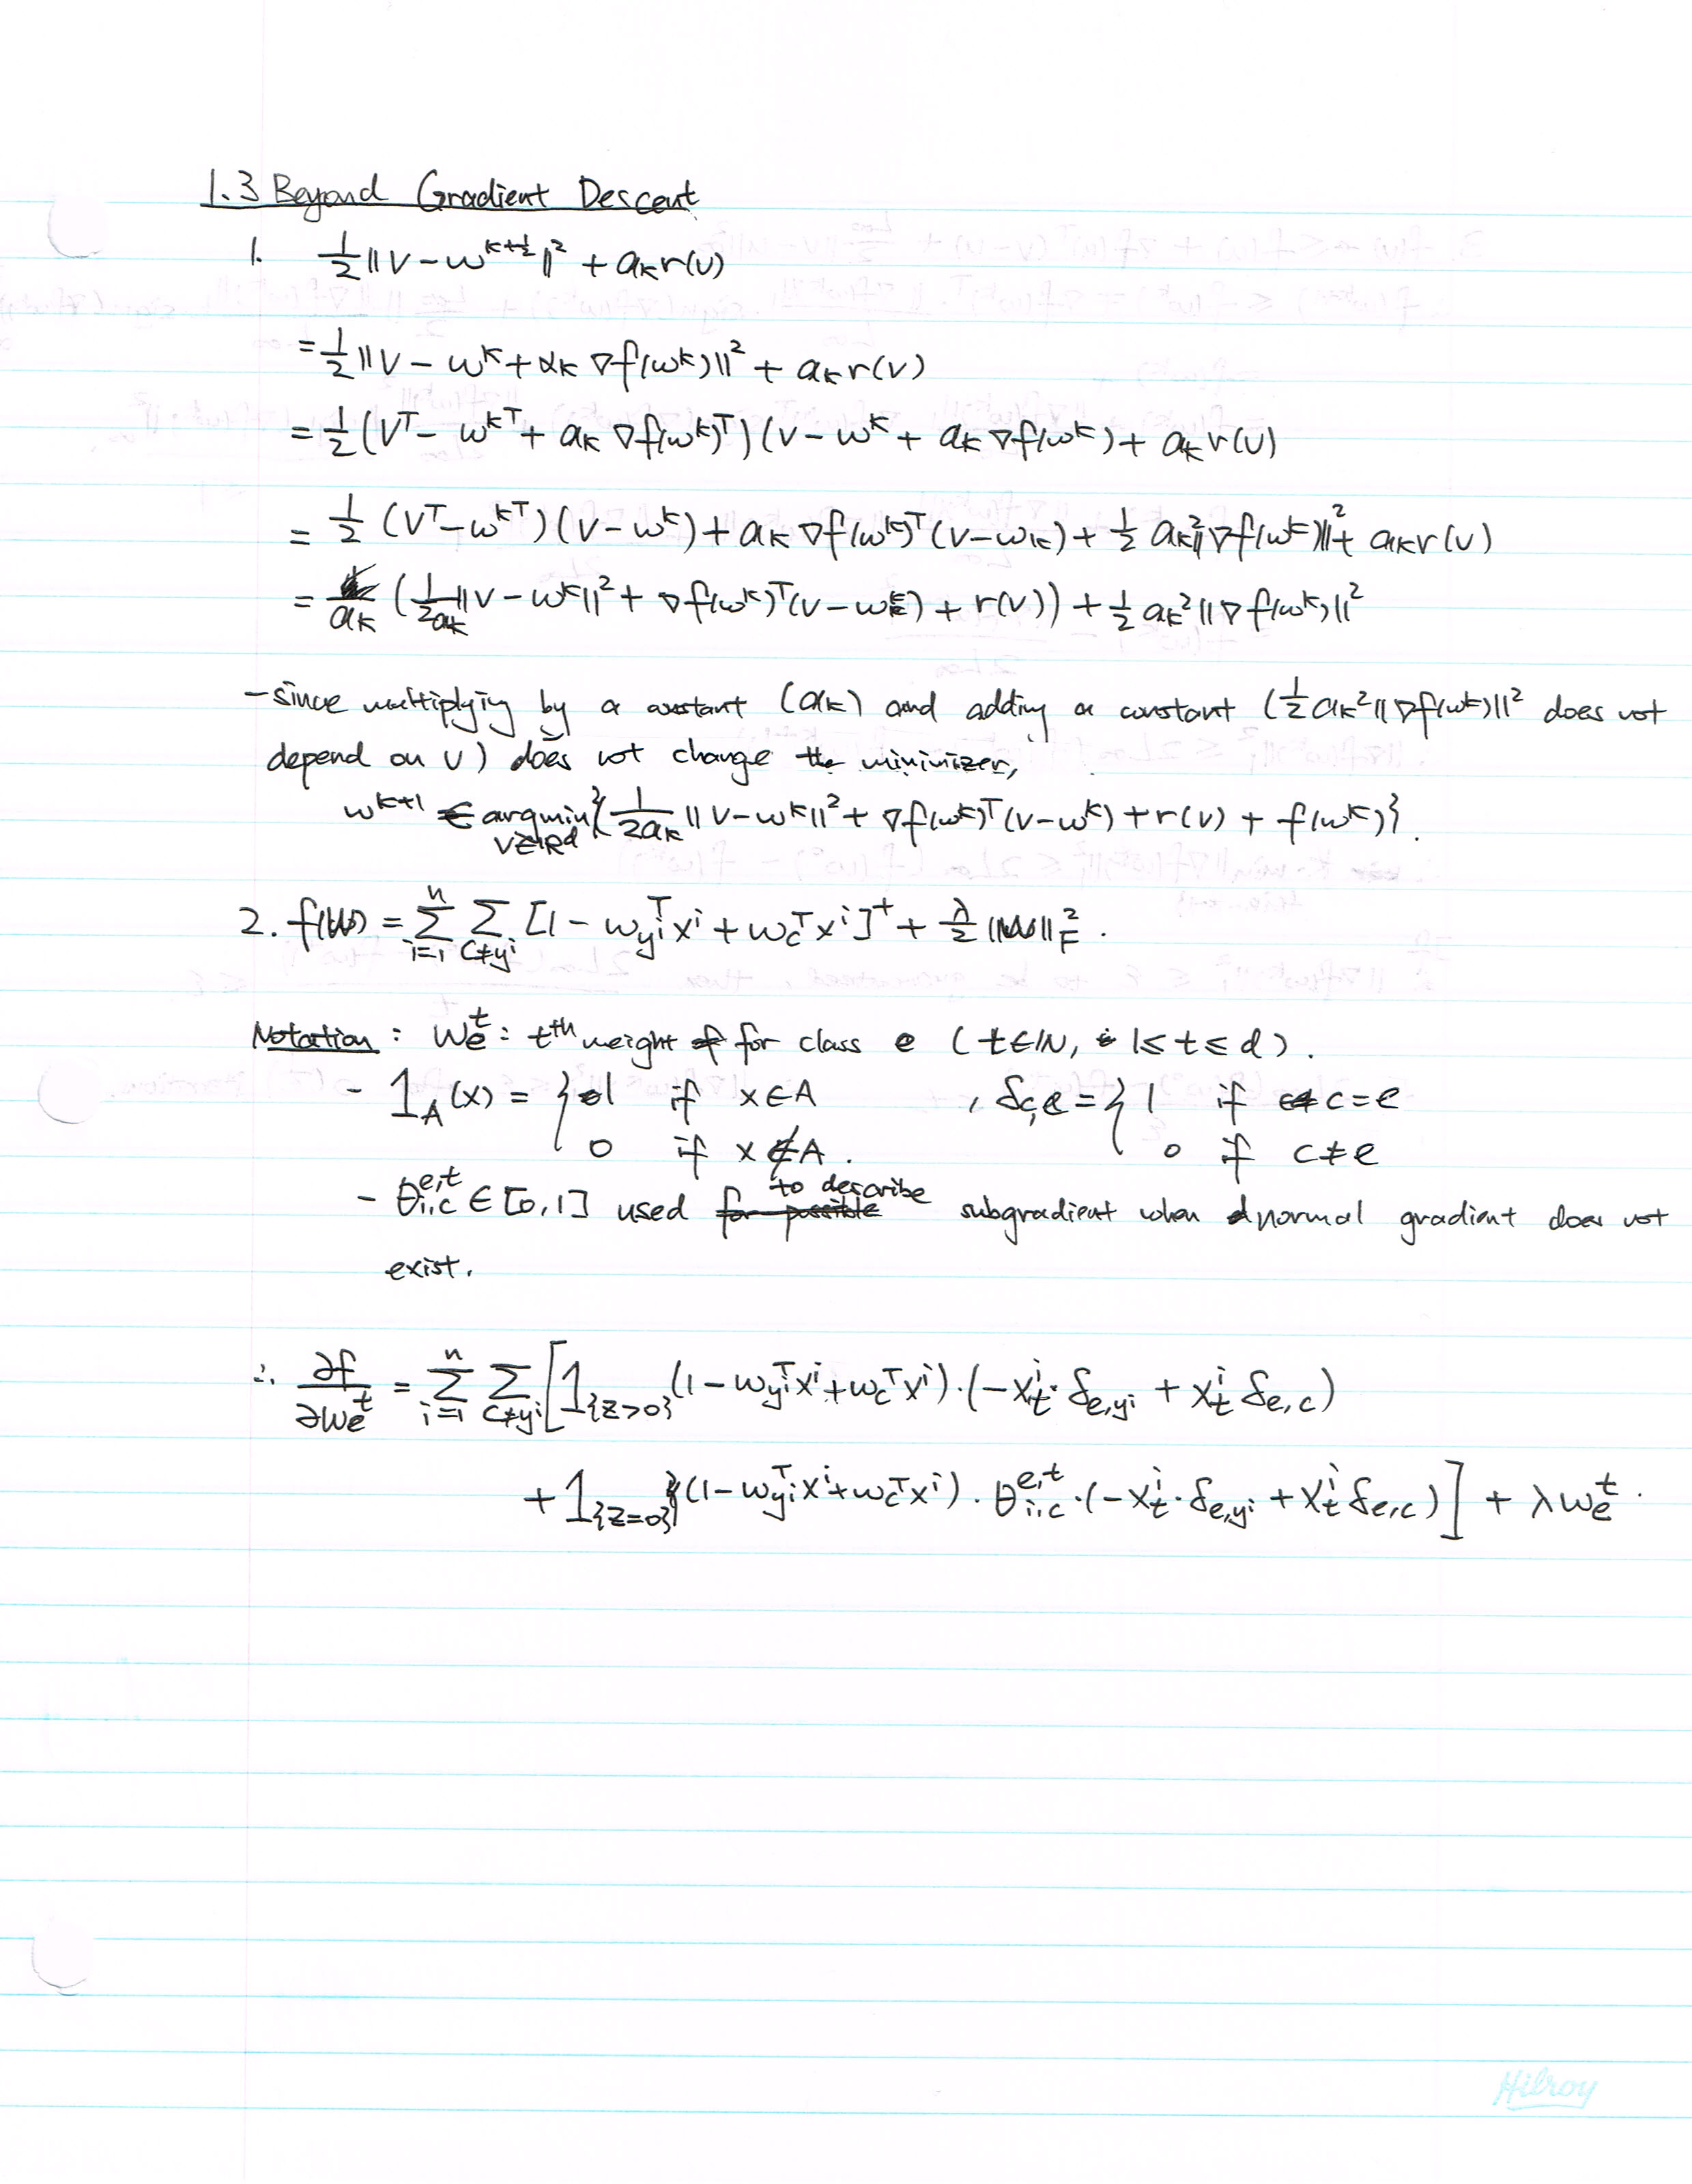 1.3 Beyond Gradient Descent
1. ½||v − w^{k+½}||² + α_k r(v)
= ½||v − w^k + α_k ∇f(w^k)||² + α_k r(v)
= ½(v^T − w^{kT} + α_k ∇f(w^k)^T)(v − w^k + α_k ∇f(w^k) + α_k r(v)
= ½ (v^T − w^{kT})(v − w^k) + α_k ∇f(w^k)^T (v − w_k) + ½ α_k² ||∇f(w^k)||² + α_k r(v)
= α_k (1/(2α_k) ||v − w^k||² + ∇f(w^k)^T (v − w^k) + r(v)) + ½ α_k² ||∇f(w^k)||²
- since multiplying by a constant (α_k) and adding a constant (½ α_k² ||∇f(w^k)||² does not
depend on v) does not change the minimizer,
w^{k+1} ∈ argmin_{v∈R^d} {1/(2α_k) ||v − w^k||² + ∇f(w^k)^T (v − w^k) + r(v) + f(w^k)}.
2. f(W) = Σ_{i=1}^n Σ_{c≠y^i} [1 − w_{y^i}^T x^i + w_c^T x^i]^+ + λ/2 ||W||_F².
Notation : w_e^t : t^th weight for class e (t∈ℕ, 1 ≤ t ≤ d).
- 1_A(x) = { 1 if x∈A , δ_{c,e} = { 1 if c = e
0 if x∉A. 0 if c ≠ e
- θ_{i,c}^{e,t} ∈ [0,1] used to describe subgradient when normal gradient does not
exist.
∴ ∂f/∂w_e^t = Σ_{i=1}^n Σ_{c≠y^i} [1_{{z>0}} (1 − w_{y^i}^T x^i + w_c^T x^i)·(−x_t^i · δ_{e,y^i} + x_t^i δ_{e,c})
+ 1_{{z=0}} (1 − w_{y^i}^T x^i + w_c^T x^i) · θ_{i,c}^{e,t} · (−x_t^i · δ_{e,y^i} + x_t^i δ_{e,c})] + λ w_e^t.
Hilroy